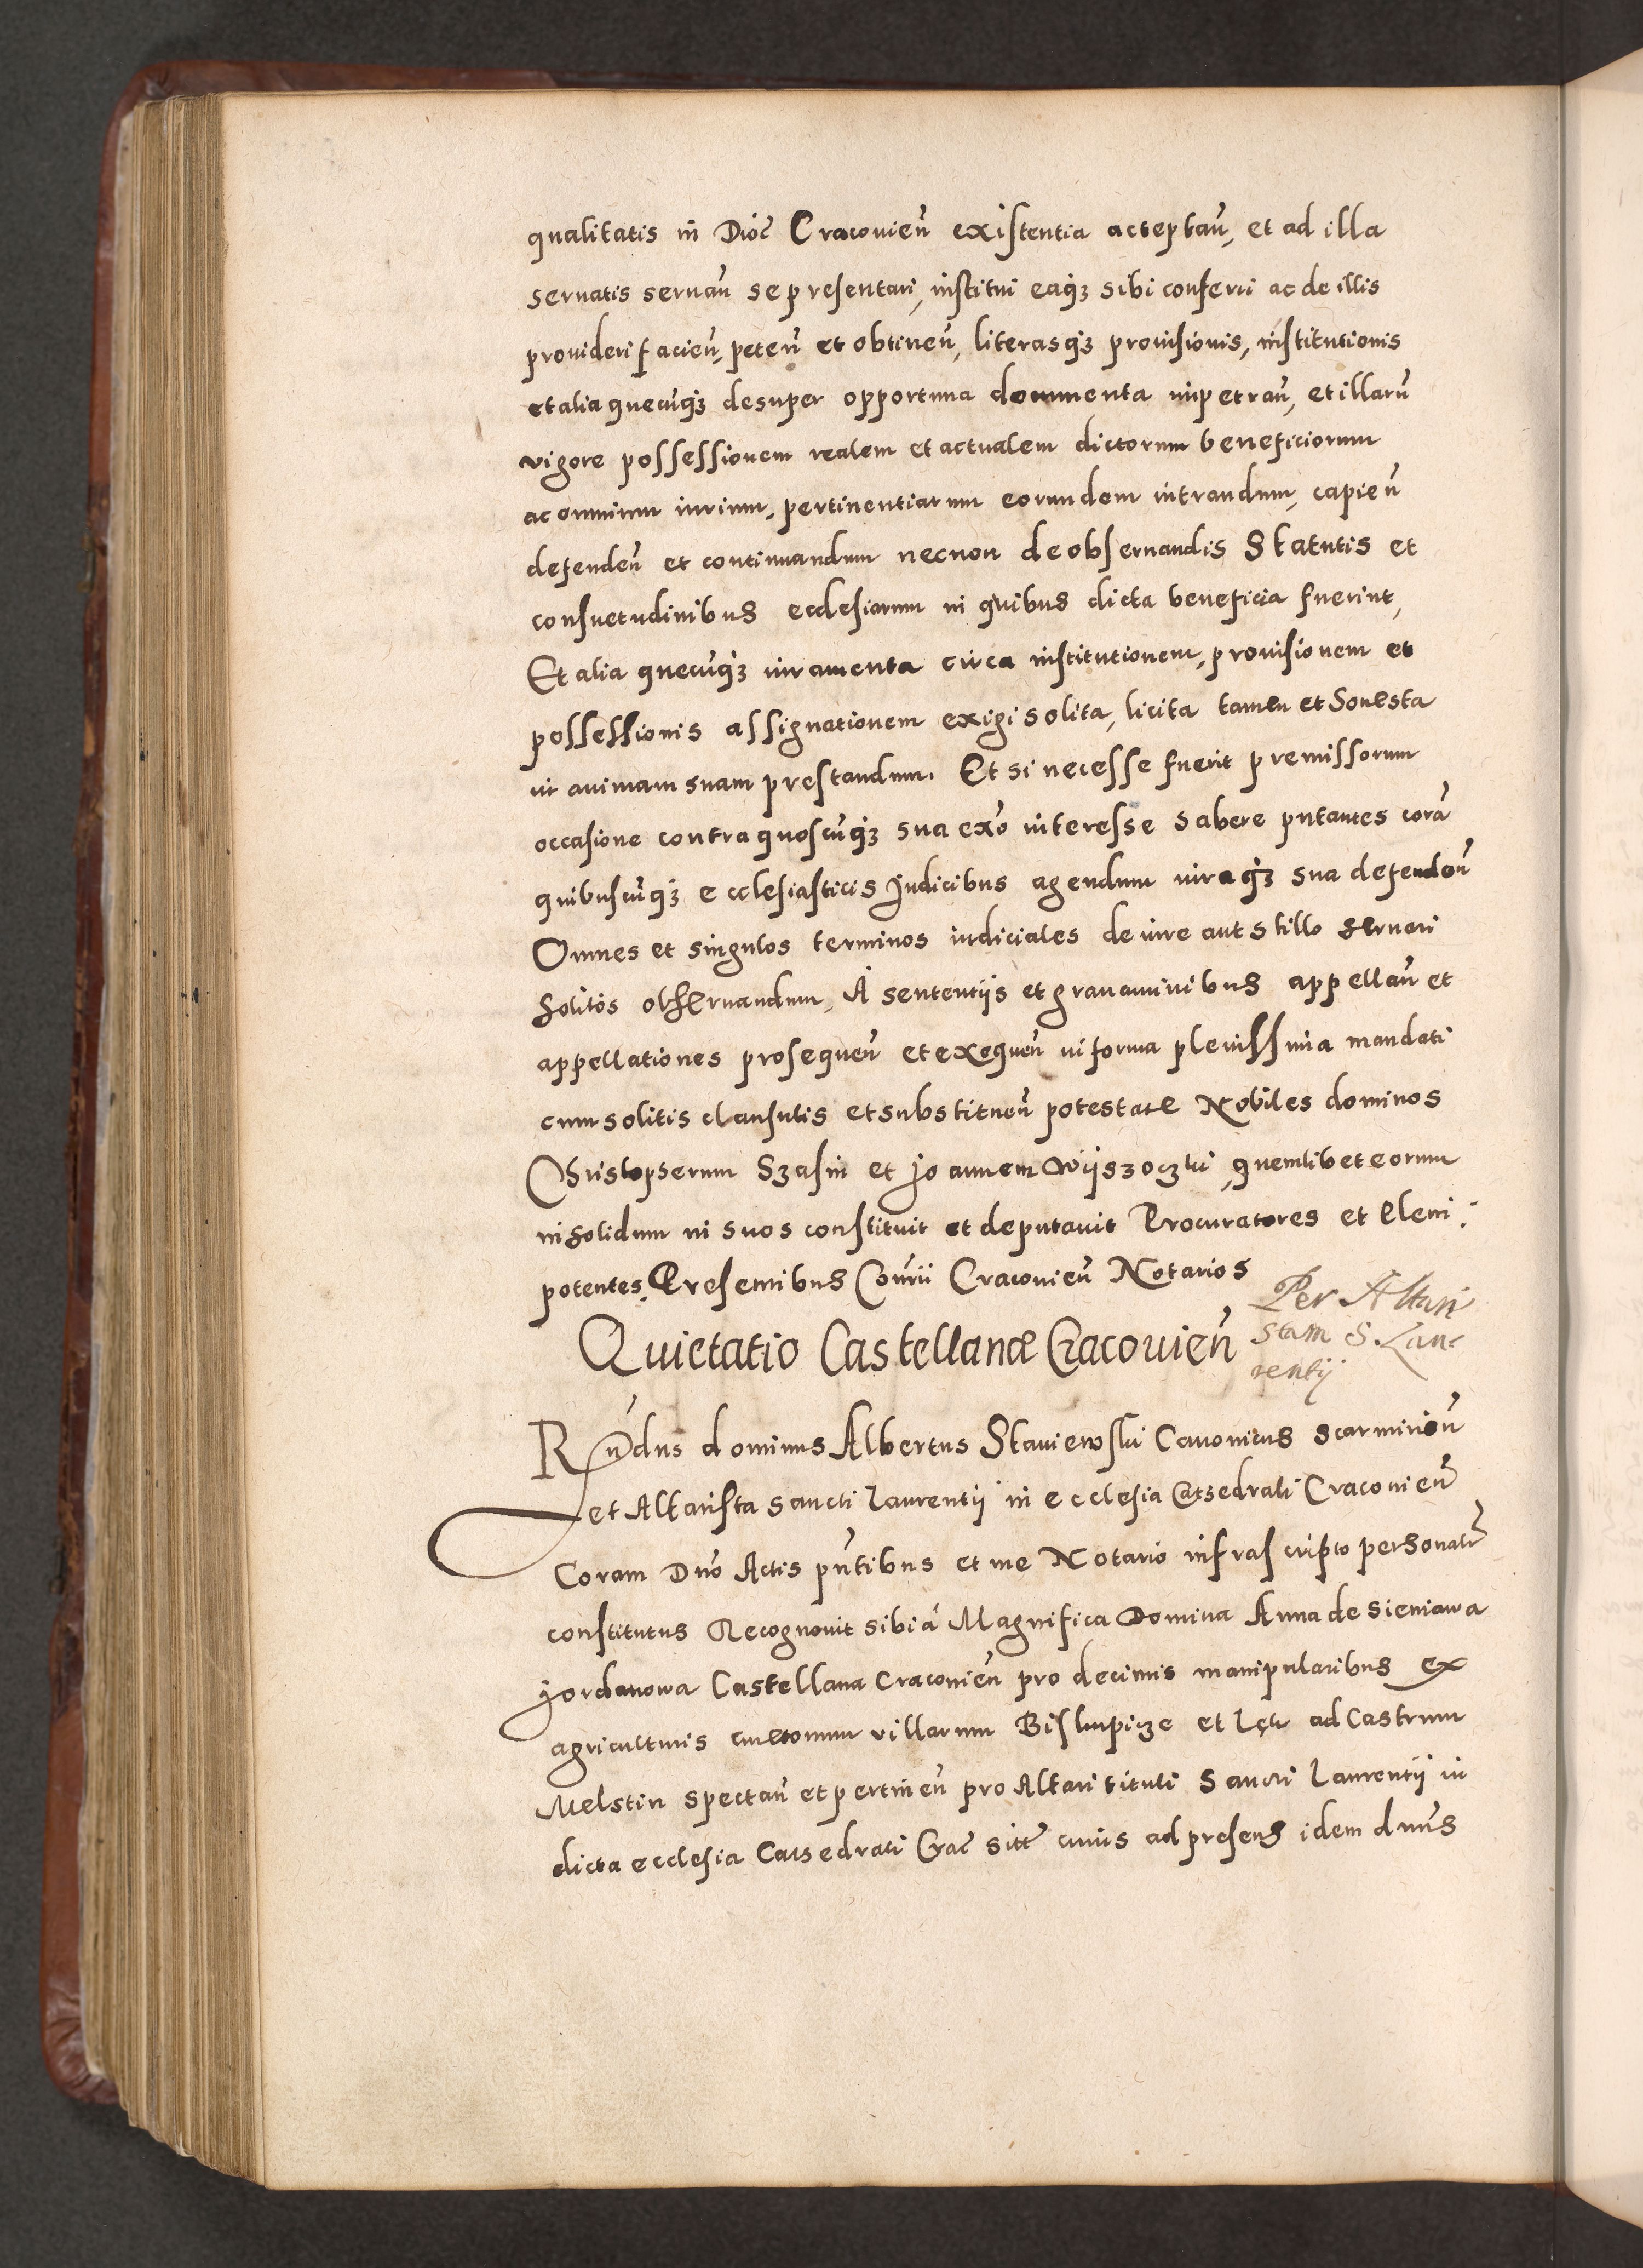 qualitatis in Dioc̃ Cracovieñ existentia acceptañ, et ad illa
servatis servañ se presentari, institui eaq3 sibi conferri ac de illis
provideri facieñ, peteñ et obtineñ, literasq3 provisionis, institutionis
et alia quecũq3 desuper opportuna documenta impetrañ, et illarũ
vigore possessionem realem et actualem dictorum beneficiorum
ac omnium iurium, pertinentiarum eorundem intrandum, capieñ
defendeñ et continuandum necnon de observandis Statutis et
consuetudinibus ecclesiarum in quibus dicta beneficia fuerint,
Et alia quecũq3 iuramenta circa institutionem, provisionem et
possessionis assignationem exigi solita, licita tamen et honesta
in animam suam prestandum. Et si necesse fuerit premissorum
occasione contra quoscũq3 sua exõ interesse habere putantes corã
quibuscũq3 ecclesiasticis Judicibus agendum iuraq3 sua defendeñ
Omnes et singulos terminos iudiciales de iure aut stillo servari
solitos observandum, A sententijs et gravaminibus appellañ et
appellationes prosequeñ et exequeñ in forma plenissima mandati
cum solitis clausulis et substitueñ potestate Nobiles dominos
Christopherum Szasin et Joannem Wijszoczki, quemlibet eorum
in solidum in suos constituit et deputavit Procuratores et Pleni:
potentes. Presentibus Coñrii Cracovieñ Notarios
Quietatio Castellanæ Cracovieñ
Per Altari
stam S. Lau-
rentij
Rñdus dominus Albertus Staniewski Canonicus Scarmirieñ
et Altarista sancti Laurentij in ecclesia Cathedrali Cracovieñ
Coram Dño Actis pñtibus et me Notario infrascripto personalr̃
constitutus Recognovit sibi a Magnifica Domina Anna de Sieniawa
Jordanowa Castellana Cracovieñ pro decimis manipularibus ex
agriculturis cmetonum villarum Biskupicze et Lęki ad Castrum
Melstin spectañ et pertineñ pro Altari tituli Sancti Laurentij in
dicta ecclesia Cathedrali Crac̃ sitt̃ cuius ad presens idem dñus